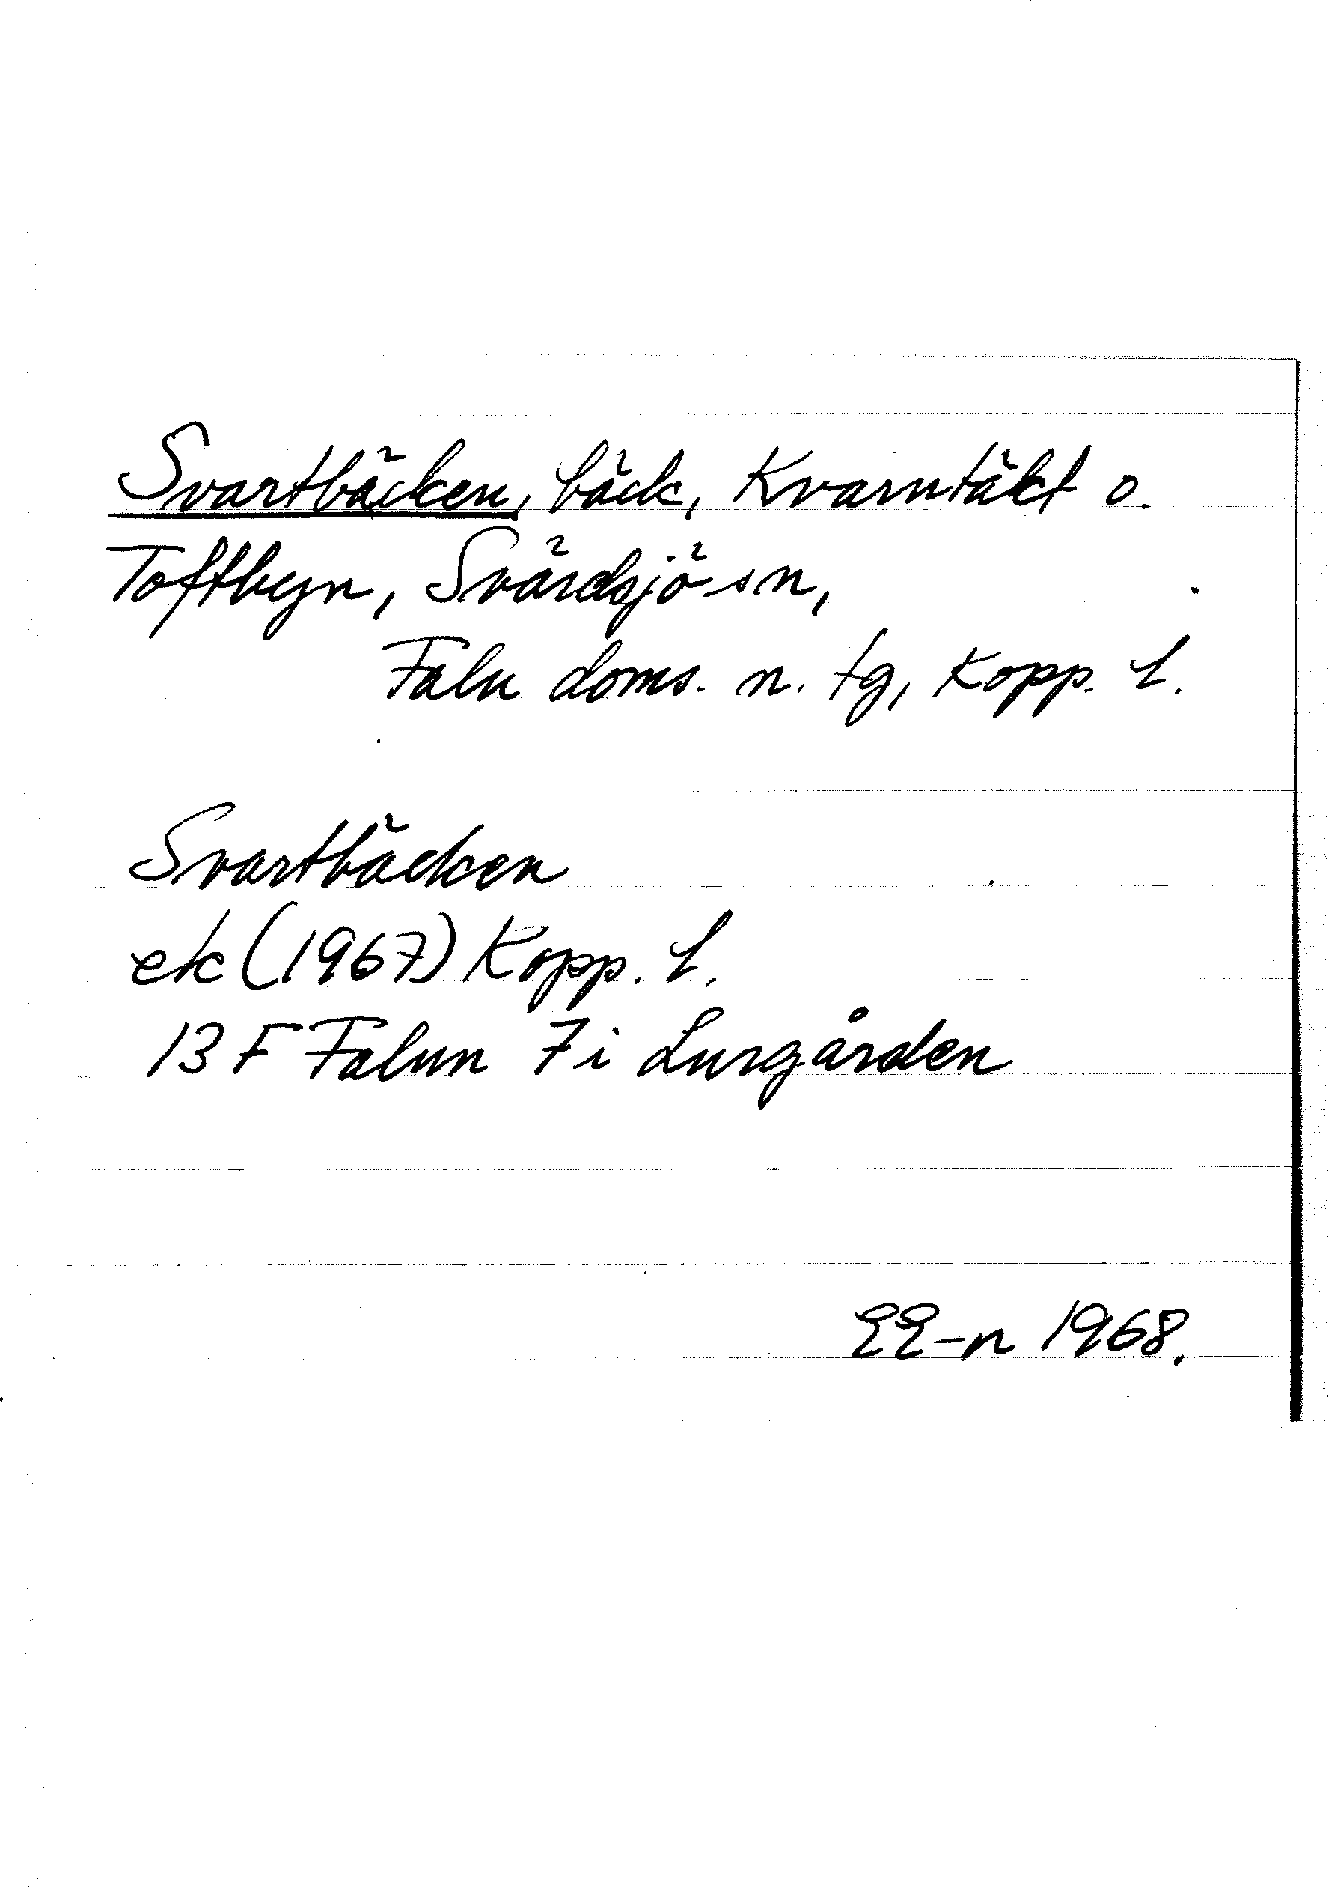 Svartbäcken, bäck, Kvarntäkt o.
Toftbyn, Svärdsjö sn,
Falu doms. n. tg, Kopp. l.
Svartbäcken
ek (1967) Kopp. l.
13 F Falun 7 i Lurgården
EE-n 1968.